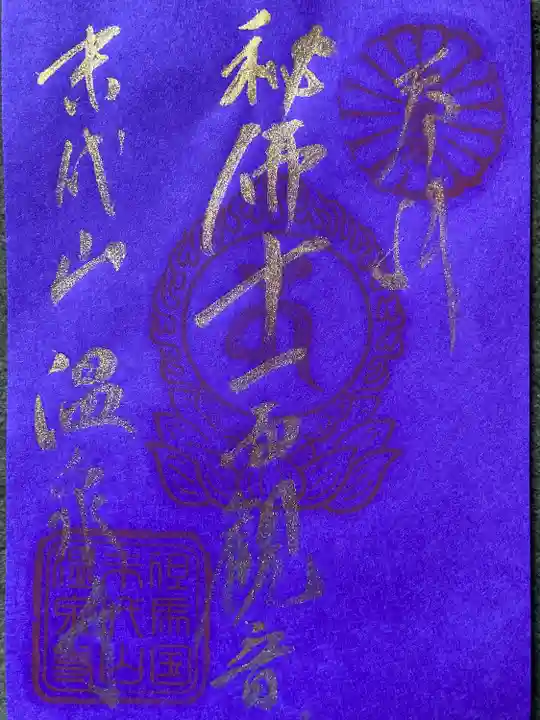 奉拝
秘佛十一面観音
末代山 温泉寺
但馬国
末代山
温泉寺